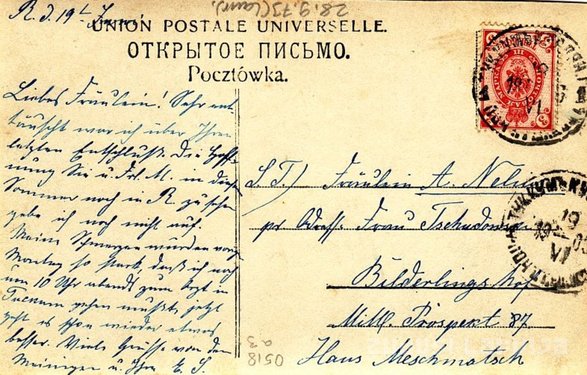 R. d. 19t Juni.
28.9.75
UNION POSTALE UNIVERSELLE.
ОТКРЫТОЕ ПИСЬМО.
Pocztówka.
Liebes Fräulein! Sehr ent
täuscht war ich über Ihren
letzten Entschluß. Die Hoff
nung Sie u. Frl. M. in diesem
Sommer noch in R. zu sehen
gebe ich noch nicht auf.
Meine Schmerzen wurden vorigen
Montag so stark, daß ich noch
um 10 Uhr abends zum Arzt in
Tuckum gehen mußte, jetzt
geht es schon wieder etwas
besser. Viele Grüße von den
Meinigen u. Ihrer E. S.
S. T.) Fräulein A.
pr Adr. Frau
Bilderlingshof
Mill. Prospect 87
Haus Meschmatsch
19
VI
19
VI
0518
a 3